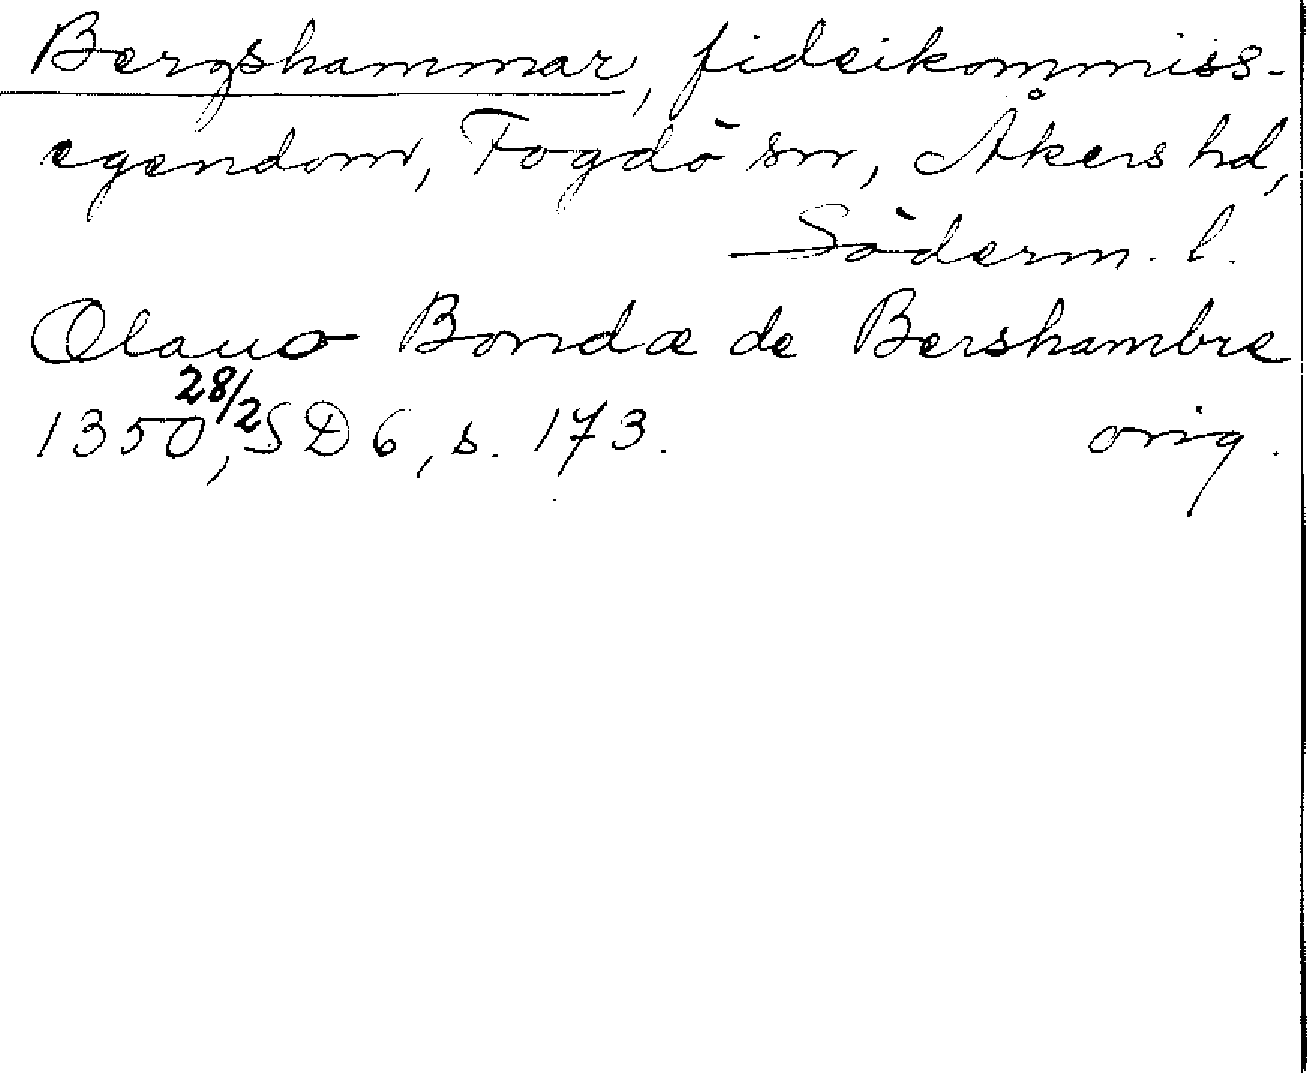 Bergshammar, fideikommiss-
egendom, Fogdö sn, Åkers hd,
Söderm. l.
Olauo Bondæ de Bershambre
1350 28/2, SD 6, s. 173. orig.